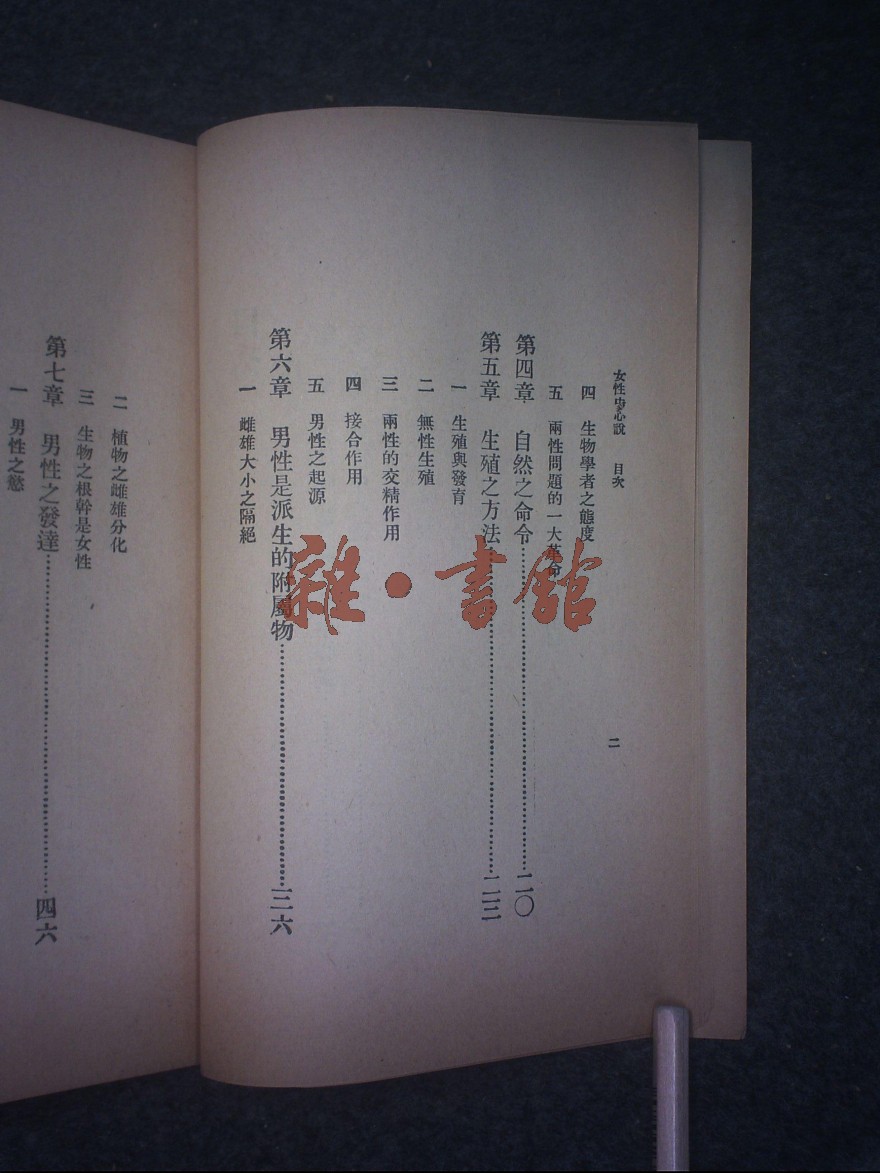 女性中心說 目次
二
四 生物學者之態度
五 兩性問題的一大革命
第四章 自然之命令……二〇
第五章 生殖之方法……二三
一 生殖與發育
二 無性生殖
三 兩性的交精作用
四 接合作用
五 男性之起源
第六章 男性是派生的附屬物……三六
一 雌雄大小之隔絕
二 植物之雌雄分化
三 生物之根幹是女性
第七章 男性之發達……四六
一 男性之慾
雜·書館